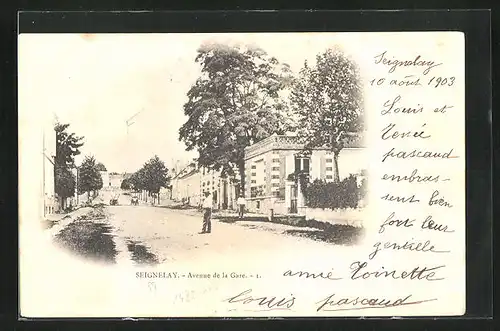 Seignelay
10 août 1903
Louis et
Renée
pascaud
embras-
sent bien
fort leur
gentille
amie Toinette
Louis pascaud
SEIGNELAY. - Avenue de la Gare. - 1.